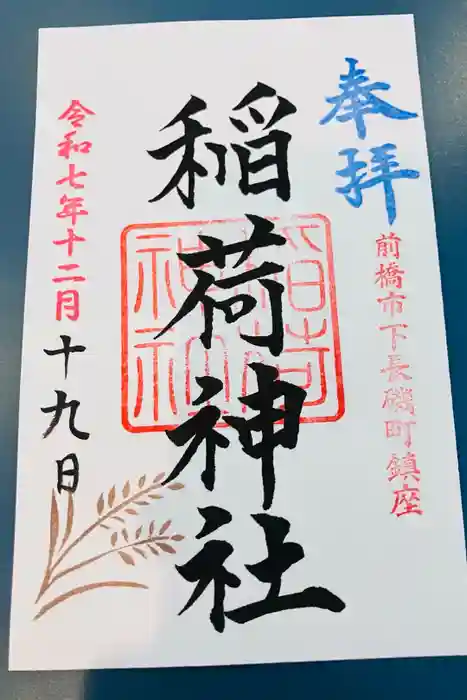 奉拝
前橋市下長磯町鎮座
稲荷神社
稲荷
神社
令和七年十二月十九日